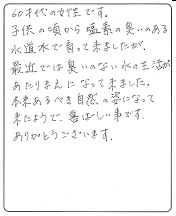 60才代の女性です。
子供の頃から塩素の臭いのある
水道水で育って来ましたが、
最近では臭いのない水の生活が
あたりまえになって来ました。
本来あるべき自然の姿になって
来たようで、喜ばしい事です。
ありがとうございます。